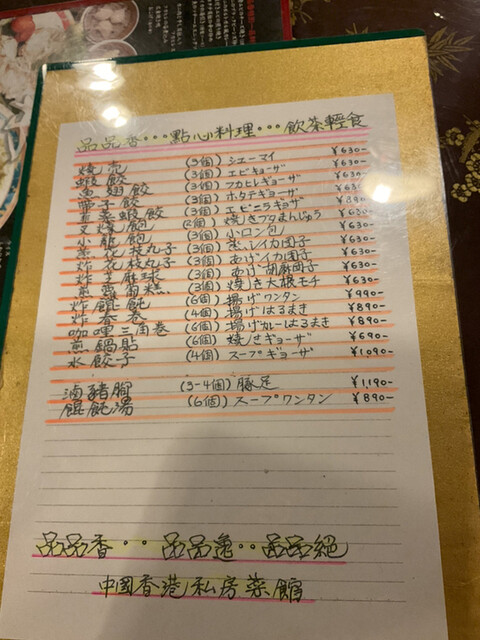 品品香・・・點心料理・・・飲茶輕食
燒売 (3個) シューマイ ¥630-
蝦餃 (3個) エビギョーザ ¥630-
魚翅餃 (3個) フカヒレギョーザ ¥630-
帶子餃 (3個) ホタテギョーザ ¥630-
韮菜蝦餃 (3個) エビニラギョーザ
叉燒飽 (2個) 焼きブタまんじゅう ¥630-
小籠飽 (3個) 小ロン包 ¥630-
蒸花枝丸子 (3個) 蒸しイカ団子 ¥630-
炸花枝丸子 (3個) あげイカ団子 ¥630-
炸芝麻球 (3個) あげ胡麻団子 ¥630-
煎蘿蔔糕 (3個) 焼き大根モチ ¥630-
炸餛飩 (6個) 揚げワンタン ¥990-
炸春巻 (4個) 揚げはるまき ¥890-
咖哩三角巻 (6個) 揚げカレーはるまき ¥890-
煎鍋貼 (6個) 焼きギョーザ ¥690-
水餃子 (4個) スープギョーザ ¥1090-
滷豬脚 (3-4個) 豚足 ¥1,190-
餛飩湯 (6個) スープワンタン ¥890-
品品香・・品品逸・・品品絕
中國香港私房菜館